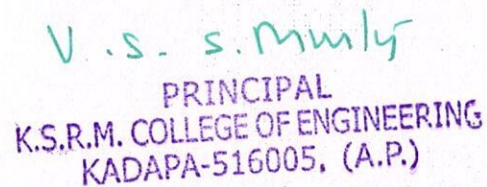 V.S.S. Murly
PRINCIPAL
K.S.R.M. COLLEGE OF ENGINEERING
KADAPA-516005. (A.P.)